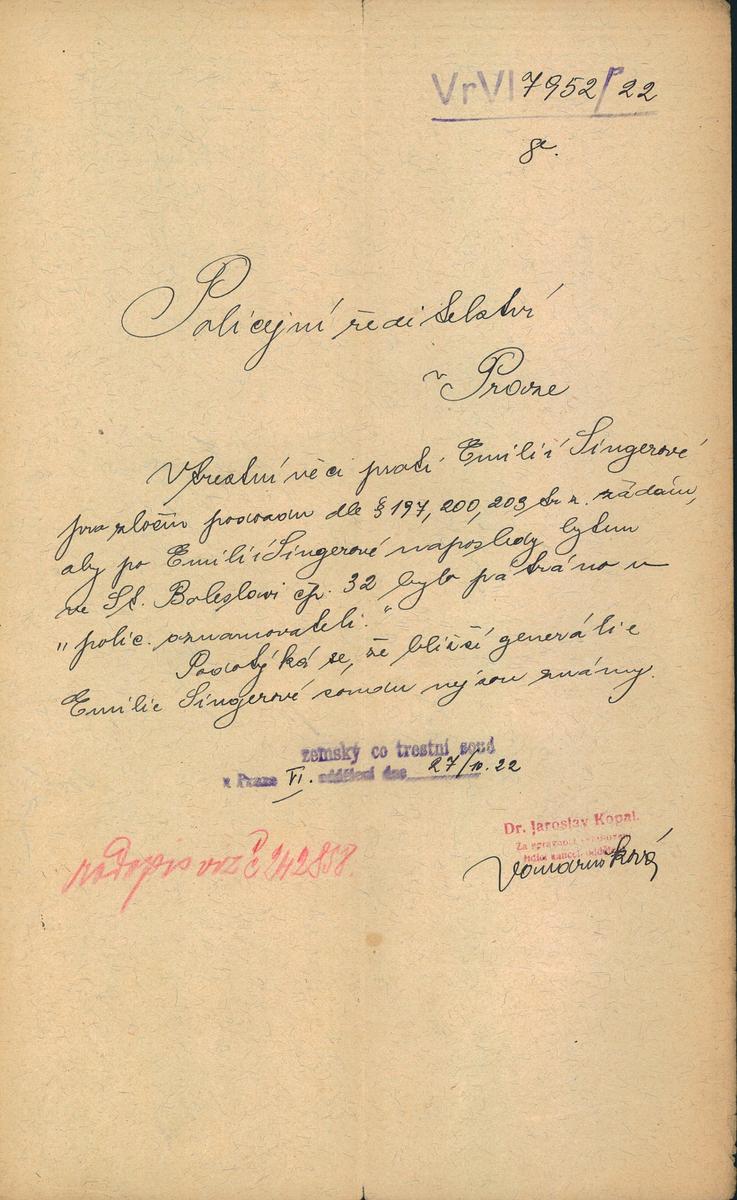 VrVI 7952/22
Policejní ředitelství
v Praze
V trestní věci proti Emilii Singerové
pro zločin podvodu dle § 197, 200, 203 tr. z. žádám,
aby po Emilii Singerové naposledy bytem
ve St. Boleslavi čp. 32 bylo pátráno v
"polic. oznamovateli."
Podotýká se, že bližší generálie
Emilie Singerové soudu nejsou známy.
zemský co trestní soud
v Praze VI. oddělení dne 27/10. 22
Dr. Jaroslav Kopal.
Za správnost
kancel. oddělení
242858